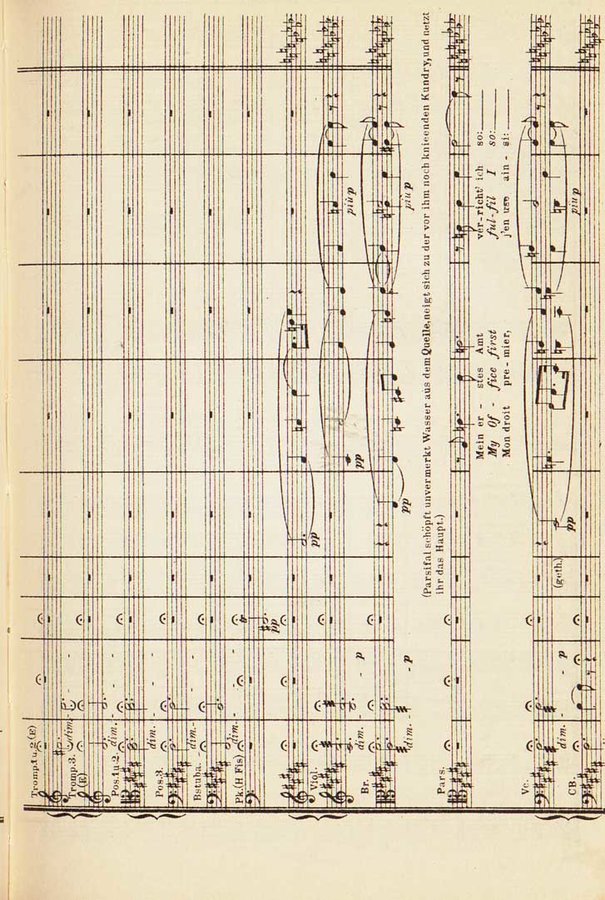 Tromp.1 u.2.(E)
Tromp.3.
(E)
dim.
Pos.1 u.2.
dim.
Pos.3.
dim.
Bstuba.
dim.
Pk.(H Fis)
dim.
tr
pp
Viol.
pp
pp
più p
dim.
p
Br.
pp
più p
dim.
p
(Parsifal schöpft unvermerkt Wasser aus dem Quelle, neigt sich zu der vor ihm noch knieenden Kundry, und netzt
ihr das Haupt.)
Pars.
Mein er - stes Amt verricht' ich so:
My Of - fice first ful-fil I so:
Mon droit pre - mier, j'en use ain - si:
Vc.
(geth.)
pp
più p
dim.
p
CB.